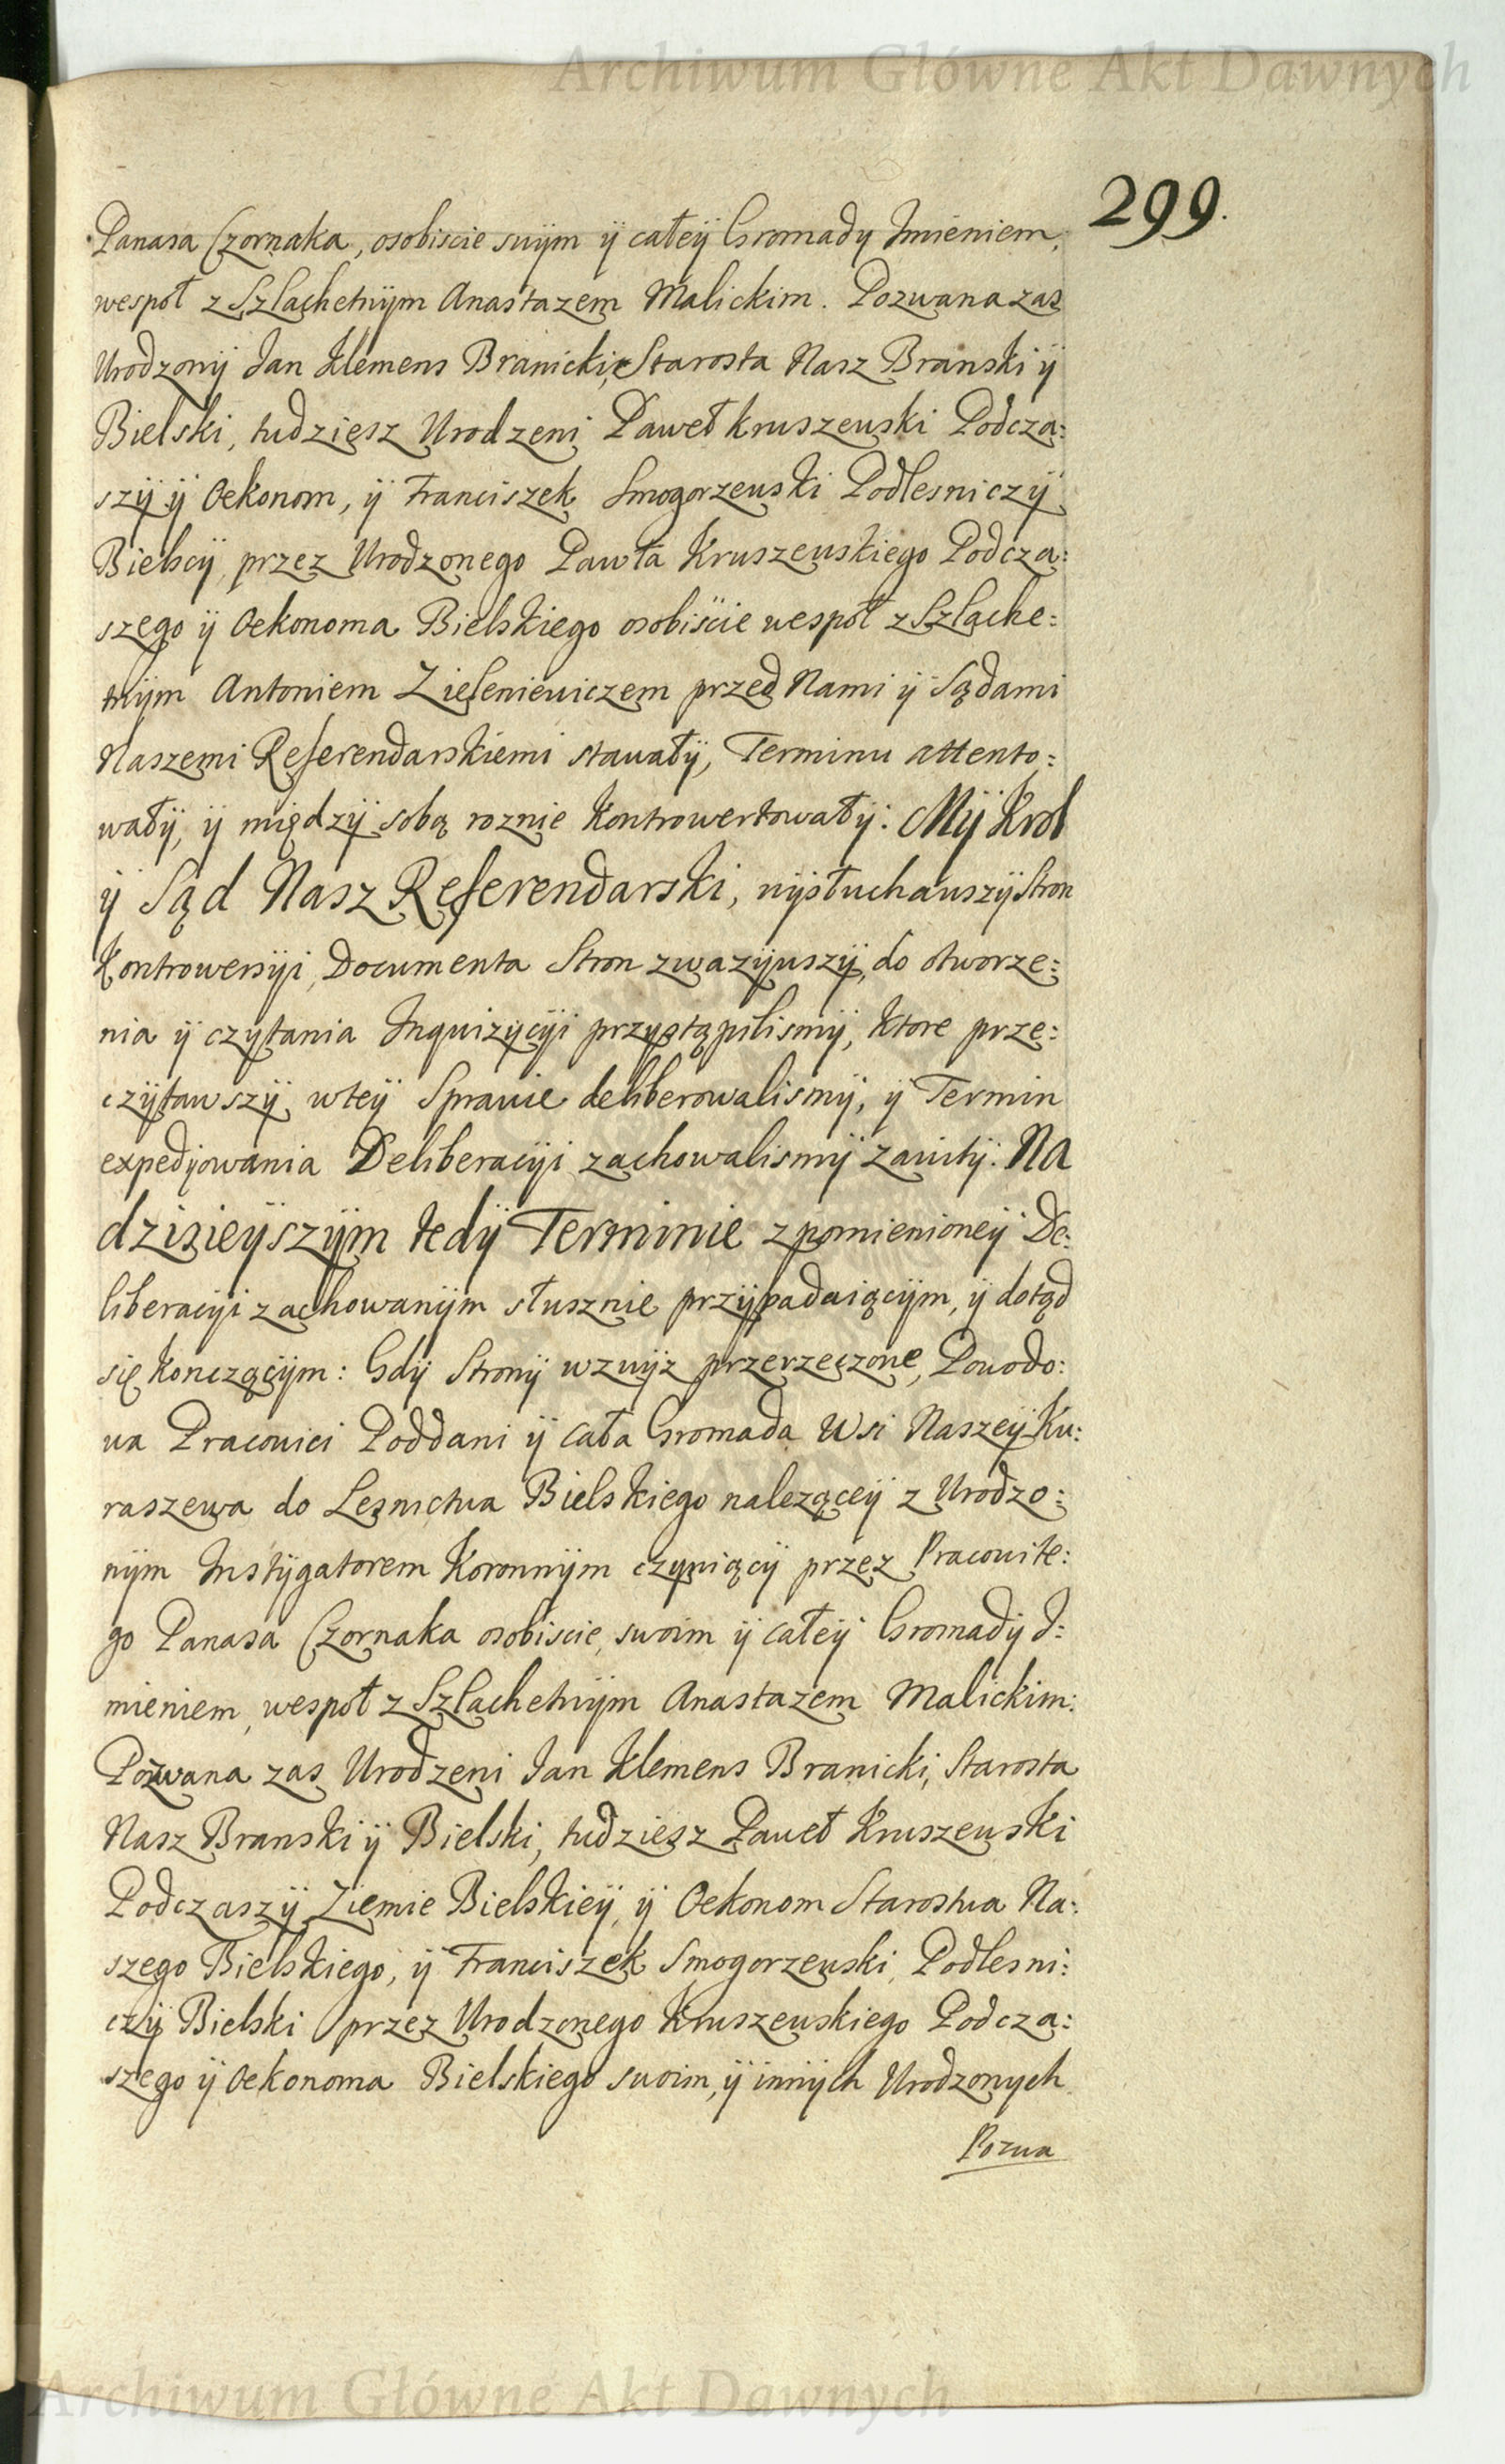 Archiwum Główne Akt Dawnych
299.
Panasa Czornaka, osobiscie swÿm ÿ całeÿ Gromady Imieniem,
wespoł z Szlachetnÿm Anastazem Malickim. Pozwana zas
Urodzonÿ Jan Klemens Branicki, Starosta Nasz Branski ÿ
Bielski, tudziesz Urodzeni Paweł Kruszewski Podcza:
szÿ ÿ Oekonom, ÿ Franciszek Smogorzewski Podlesniczÿ
Bielscÿ, przez Urodzonego Pawła Kruszewskiego Podcza:
szego ÿ Oekonoma Bielskiego osobiscie wespoł z Szlache:
tnÿm Antoniem Zieleniewiczem przed Nami ÿ Sądami
Naszemi Referendarskiemi stawałÿ, Terminu attento:
wałÿ, ÿ międzÿ sobą roznie kontrowertowałÿ: Mÿ Krol
ÿ Sąd Nasz Referendarski, wÿsłuchawszÿ Stron
Kontrowersÿi, Documenta Stron zwazÿwszÿ, do otworze:
nia ÿ czÿtania Inquizÿcÿi przÿstąpilismÿ, ktore prze:
czÿtawszÿ, wteÿ Sprawie deliberowalismÿ, ÿ Termin
expedÿowania Deliberacÿi zachowalismÿ zawitÿ. Na
dzisieÿszÿm tedÿ Terminie z pomienioneÿ De:
liberacÿi zachowanÿm słusznie przÿpadaiącÿm, ÿ dotąd
się konczącÿm: Gdÿ Stronÿ wzwÿz przerzeczone, Powodo:
wa Pracowici Poddani ÿ cała Gromada Wsi Naszeÿ Ku:
raszewa do Lesnictwa Bielskiego nalezącej z Urodzo:
nÿm Instÿgatorem Koronnÿm czyniącÿ przez Pracowite:
go Panasa Czornaka osobiscie, swoim ÿ całeÿ Gromadÿ I:
mieniem, wespoł z Szlachetnÿm Anastazem Malickim:
Pozwana zas Urodzeni Jan Klemens Branicki, Starosta
Nasz Branski ÿ Bielski, tudziesz Paweł Kruszewski
Podczaszÿ Ziemie Bielskieÿ, ÿ Oekonom Starostwa Na:
szego Bielskiego, ÿ Franciszek Smogorzewski, Podlesni:
czÿ Bielski przez Urodzonego Kruszewskiego Podcza:
szego ÿ Oekonoma Bielskiego swoim, ÿ innÿch Urodzonych
Pozwa
Archiwum Główne Akt Dawnych